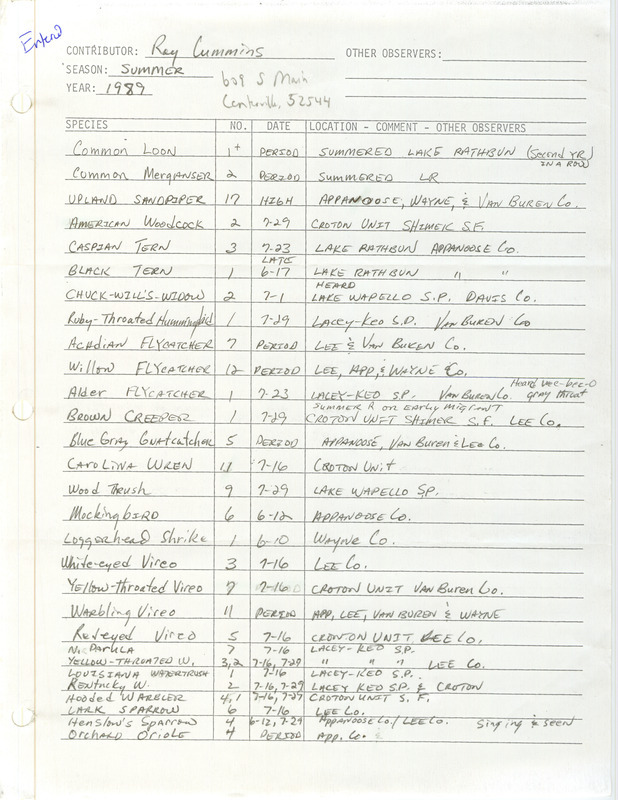 Entered
CONTRIBUTOR: Ray Cummins OTHER OBSERVERS:
SEASON: SUMMER
YEAR: 1989
609 S Main
Centerville, 52544
SPECIES NO. DATE LOCATION - COMMENT - OTHER OBSERVERS
Common Loon 1+ PERIOD SUMMERED LAKE RATHBUN (Second YR IN A ROW)
Common Merganser 2 PERIOD SUMMERED LR
UPLAND SANDPIPER 17 HIGH APPANOOSE, WAYNE, & VAN BUREN Co.
AMERICAN WOODCOCK 2 7-29 CROTON UNIT SHIMEK S.F.
CASPIAN TERN 3 7-23 LAKE RATHBUN APPANOOSE Co.
BLACK TERN 1 LATE 6-17 LAKE RATHBUN " "
CHUCK-WILL'S-WIDOW 2 7-1 HEARD LAKE WAPELLO S.P. DAVIS Co.
Ruby-Throated Hummingbid 1 7-29 LACEY-KEO S.P. VAN BUREN Co
ACADIAN FLYCATCHER 7 PERIOD LEE & VAN BUREN Co.
Willow FLYCATCHER 12 PERIOD LEE, APP, & WAYNE Co.
Alder FLYCATCHER 1 7-23 LACEY-KEO SP. VAN BUREN Co. Heard vee-bee-o gray throat
BROWN CREEPER 1 7-29 SUMMER R or EARLY MIGRANT CROTON UNIT SHIMEK S.F. LEE Co.
Blue Gray Gnatcatcher 5 PERIOD APPANOOSE, VAN BUREN & LEE Co.
CAROLINA WREN 11 7-16 CROTON UNIT
Wood Thrush 9 7-29 LAKE WAPELLO S.P.
MockingbIRD 6 6-12 APPANOOSE Co.
Loggerhead Shrike 1 6-10 WAYNE Co.
White-eyed Vireo 3 7-16 LEE Co.
Yellow-Throated Vireo 7 7-16 CROTON UNIT VAN BUREN Co.
WARbling Vireo 11 PERIOD APP, LEE, VAN BUREN & WAYNE
Red-eyed Vireo 5 7-16 CROWTON UNIT LEE Co.
N. PARULA 7 7-16 LACEY-KEO S.P.
YELLOW-THROATED W. 3,2 7-16, 7-29 " " " LEE Co.
LOUISIANA WATERTRUSH 1 7-16 LACEY-KEO S.P.
Kentucky W. 2 7-16, 7-29 LACEY KEO S.P. & CROTON
Hooded WARBLER 4,1 7-16, 7-29 CROTON UNIT S.F.
LARK SPARROW 6 7-16 LEE Co.
Henslow's Sparrow 4 6-12, 7-29 APPANOOSE Co./ LEE Co. Singing & seen
Orchard Oriole 4 PERIOD APP. Co.